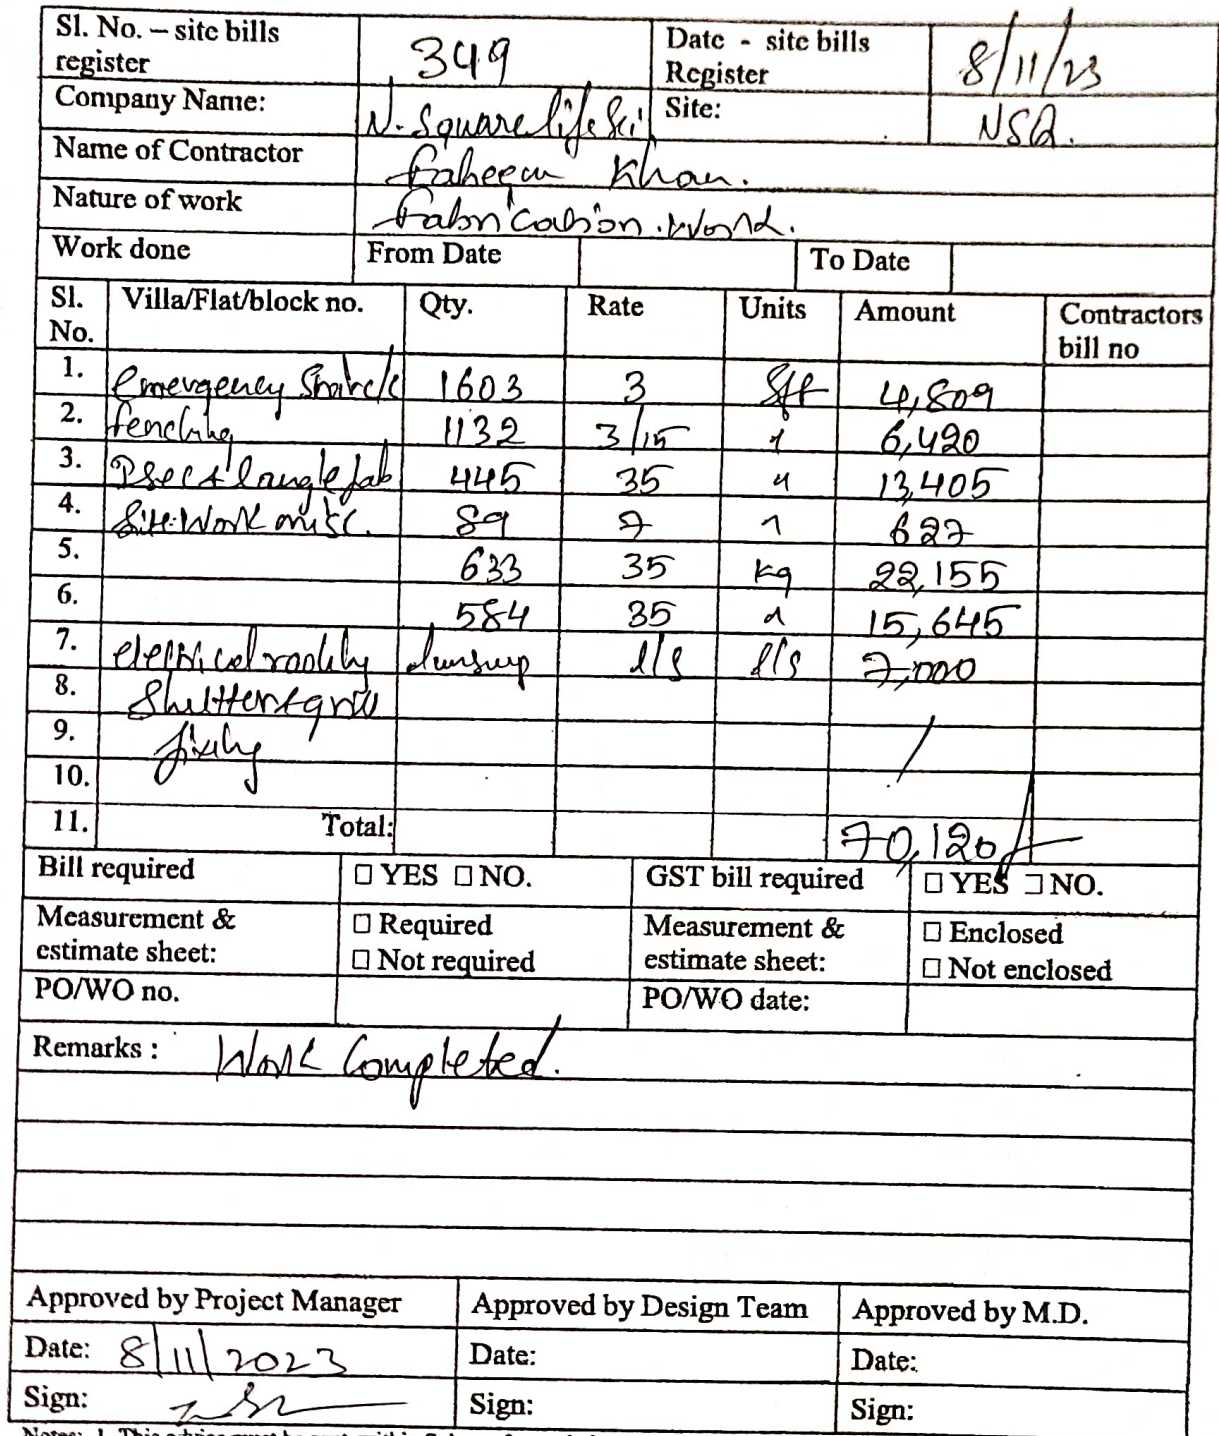 Sl. No. – site bills register 349 Date - site bills Register 8/11/23
Company Name: N. Square lifesci Site: NSQ.
Name of Contractor Faheem Khan.
Nature of work Fabrication work.
Work done From Date To Date
Sl. No. Villa/Flat/block no. Qty. Rate Units Amount Contractors bill no
1. emergency 1603 3 Sft 4,809
2. fencing 1132 3/15 " 6,420
3. 445 35 " 13,405
4. Site work misc. 89 7 " 627
5. 633 35 kg 22,155
6. 584 35 " 15,645
7. electrical lumsup l/s l/s 7,000
8. Shutter & grill
9. fixing
10.
11. Total: 70,120/-
Bill required □ YES □ NO. GST bill required □ YES □ NO.
Measurement & estimate sheet: □ Required □ Not required Measurement & estimate sheet: □ Enclosed □ Not enclosed
PO/WO no. PO/WO date:
Remarks : Work Completed.
Approved by Project Manager Approved by Design Team Approved by M.D.
Date: 8/11/2023 Date: Date:
Sign: Sign: Sign: